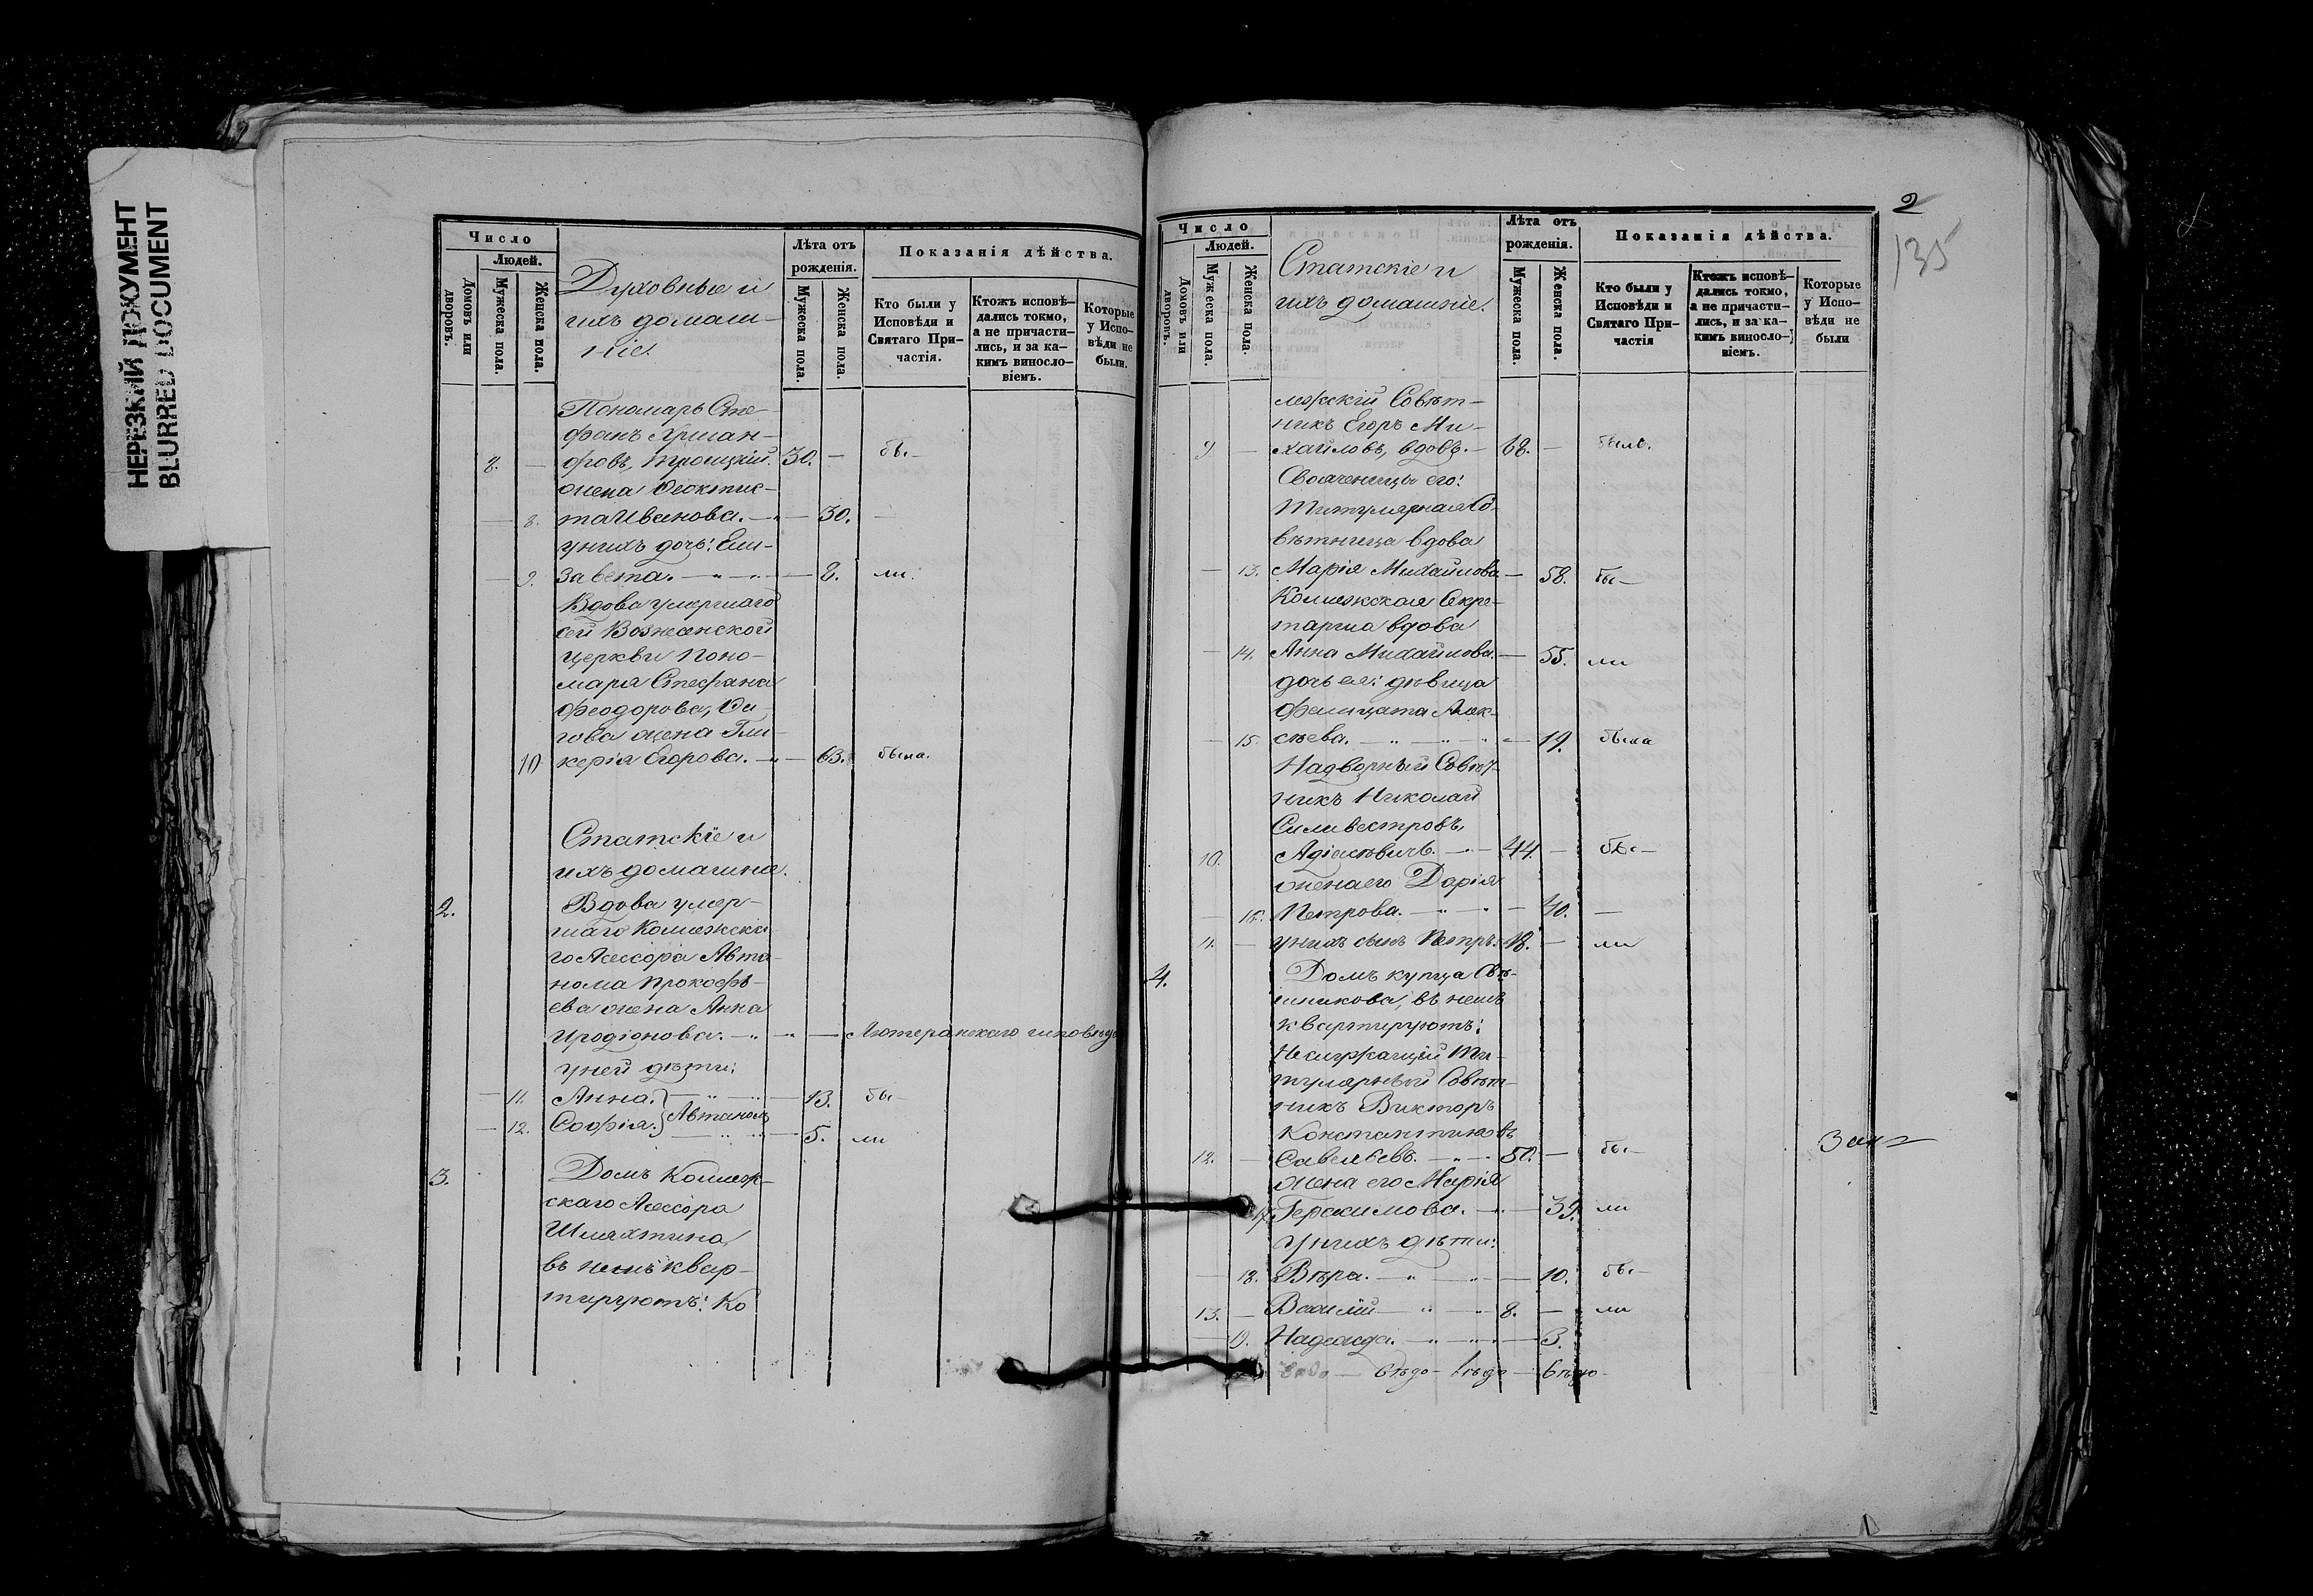 НЕРЕЗКИЙ ДОКУМЕНТ
BLURRED DOCUMENT
Число
Людей.
Домовъ или дворовъ.
Мужеска пола.
Женска пола.
Духовные и
ихъ домаш-
ніе.
Лѣта отъ рожденія.
Мужеска пола.
Женска пола.
Показанія дѣйства.
Кто были у Исповѣди и Святаго При-частія.
Ктожъ исповѣ-дались токмо, а не причасти-лись, и за ка-кимъ винословіемъ.
Которые у Испо-вѣди не были.
Пономарь Сте-
фанъ
8. — фовъ, Троицкій. 30. — бы-
жена Феоктис-
— 8. та Иванова. — 30. —
у нихъ дочь: Ели-
— 9. завета. — 8. ли.
Вдова умершаго
сей Вознесенской
церкви Поно-
маря Стефана
Феодорова,
жена Гли-
10 керія Егорова. — 63. была.
Статскіе и
ихъ домашніе.
2. Вдова умер-
шаго Коллежска-
го Асессора Авто-
нома Прокофь-
ева жена Анна
Иродіонова. — Лютеранскаго
у ней дѣти:
— 11. Анна. — 13. бы-
— 12. Софія. 5. ли
3. Домъ Коллеж-
скаго Асессора
Шляхтина,
въ немъ квар-
тируютъ: Ко
2
135
Число
Людей.
Домовъ или дворовъ.
Мужеска пола.
Женска пола.
Статскіе и
ихъ домашніе.
Лѣта отъ рожденія.
Мужеска пола.
Женска пола.
Показанія дѣйства.
Кто были у Исповѣди и Святаго При-частія
Ктожъ исповѣ-дались токмо, а не причасти-лись, и за ка-кимъ винословіемъ.
Которые у Испо-вѣди не были
лежскій Совѣт-
никъ Егоръ Ми-
9 — хайловъ, вдовъ. — 68. — былъ.
Свояченицы его:
Титулярная Со-
вѣтница вдова
— 13. Марія Михайлова — 58. бы-
Коллежская Секре-
тарша вдова
— 14. Анна Михайлова. — 55. ли
дочь ея: дѣвица
Фелицата Алек-
— 15. сѣева. — 19. была
Надворный Совѣт-
никъ Николай
Силивестровъ,
10. — 44. — бы-
жена его Дарія
— 16. Петрова. — 40. —
11. — у нихъ сынъ Петръ. 18. — ли
4. Домъ купца Свѣ-
шникова, въ немъ
квартируютъ:
Неслужащій Ти-
тулярный Совѣт-
никъ Викторъ
Константиновъ
12. — Савельевъ. — 50. — бы-
жена его Марія
17. Герасимова. — 39. ли
У нихъ дѣти:
— 18. Вѣра. — 10. бы-
13. — Василій — 8. — ли
— 19. Надежда. — 3.